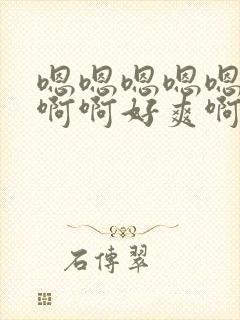 嗯嗯嗯嗯嗯
啊啊好爽啊
石傅翠